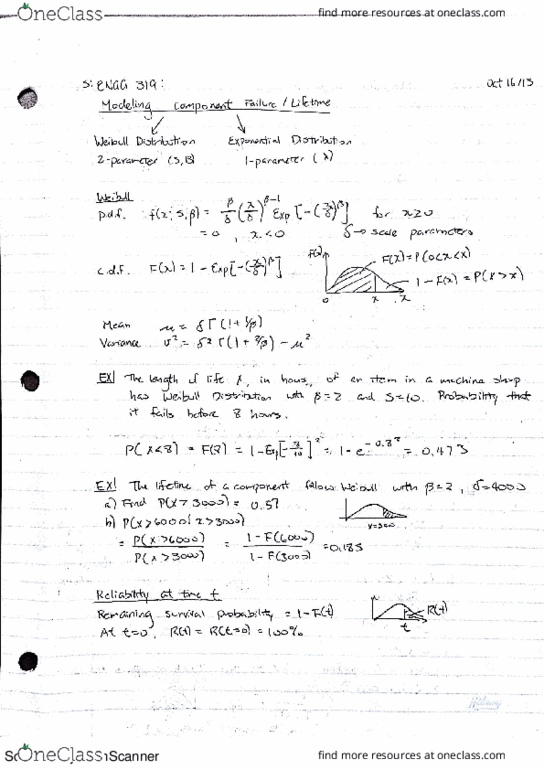 OneClass
find more resources at oneclass.com
S: ENGG 319:
Oct 16/13
Modeling Component Failure / Lifetime
Weibull Distribution
Exponential Distribution
2-parameter (S,B)
1-parameter (λ)
Weibull
p.d.f. f(x; S, β) = β/δ (x/δ)^β-1 Exp[-(x/δ)^β] for x≥0
= 0, x<0 δ→ scale parameters
c.d.f. F(x) = 1 - Exp[-(x/δ)^β]
f(x) F(x) = P(0<x<x)
1 - F(x) = P(X>x)
0 x x
Mean μ = δ Γ(1+1/β)
Variance σ² = δ² Γ(1+2/β) - μ²
EX] The length of life X, in hours, of an item in a machine shop
has Weibull Distribution with β=2 and S=10. Probability that
it fails before 8 hours.
P(X<8) = F(8) = 1 - Exp[-8/10]² = 1 - e^-0.8² = 0.473
EX] The lifetime of a component follows Weibull with β=2, δ=4000
a) Find P(X>3000) = 0.57
b) P(X>6000|x>3000)
= P(X>6000)/P(X>3000) = 1-F(6000)/1-F(3000) = 0.185
Reliability at time t
Remaining survival probability = 1-F(t)
R(t)
At t=0, R(t) = R(t=0) = 100%
t
OneClass
Scanner
find more resources at oneclass.com